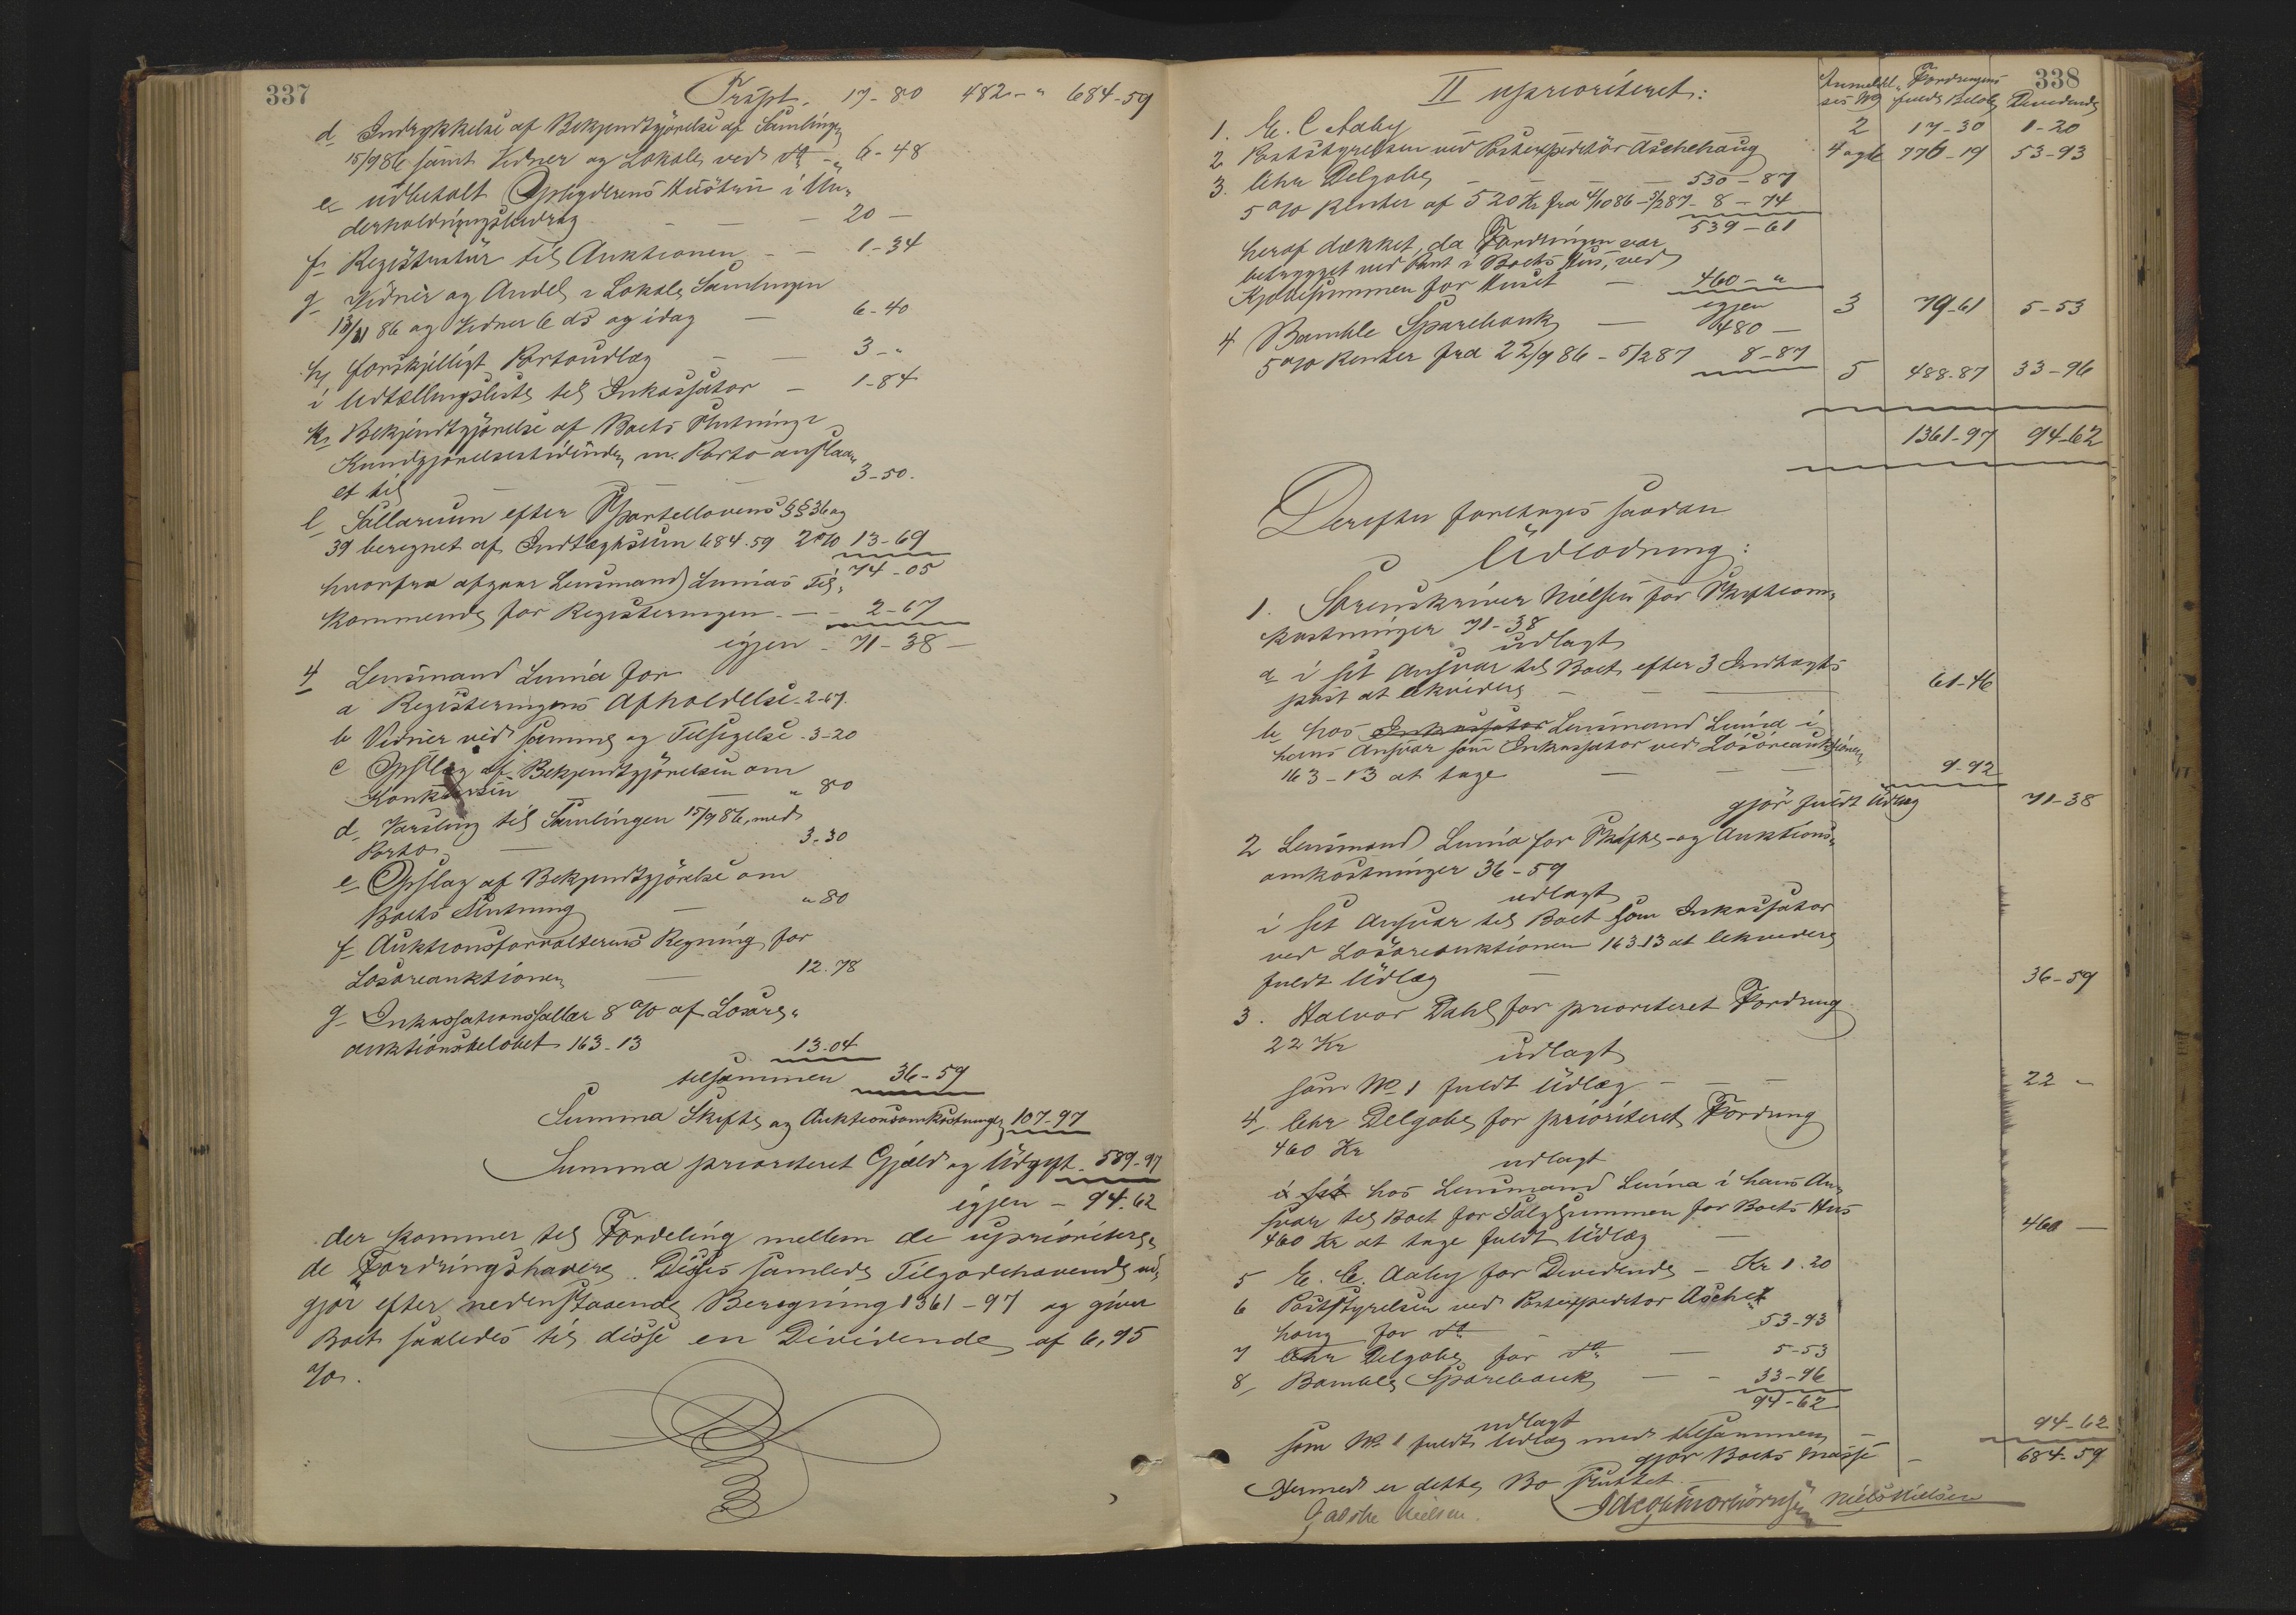 337
Trspt. 17-80 482-" 684-59
d Indrykkelse af Bekjendtgjörelse af Samlingen
15/9 86 samt Vidner og Lokale ved do - 6-48
e udbetalt Opbyderens Hustru i Un-
derholdningsbidrag - - - 20 -
f Registratur til Auktionen - - 1-34
g Vidner og Andel i Lokale Samlingen
13/11 86 og Vidner 6 ds og idag - 6-40
h forskjelligt Portoudlæg - - 3-"
i Udtællingsliste til Inkassator - 1-84
k Bekjendtgjörelse af Boets Slutning i
Kundgjörelsestidende m. Porto anslaa-
et til - 3-50.
l Sallarium efter Sportellovens §§ 36 og
39 beregnet af Indtægtssum 684.59 2 % 13-69
74-05
hvorfra afgaar Lensmand Lunias Til-
kommende for Registeringen - - 2-67
igjen - 71-38 -
4 Lensmand Lunia for
a Registeringens Afholdelse - 2-67.
b Vidner ved samme og Tilsigelse - 3-20
c Opslag af Bekjendtgjörelsen om
Konkursen - " 80
d Varsling til Samlingen 15/9 86, med
Porto - 3-30
e Opslag af Bekjendtgjörelse om
Boets Slutning - " 80
f Auktionsforvalterens Regning for
Lösöreauktionen - 12.78
g Inkassationssallar 8 % af Lösöre-
auktionsbelöbet 163-13 13-04
tilsammen 36-59
Summa Skifte og Auktionsomkostninger 107-97
Summa prioriteret Gjæld og Udgift - 589-97
igjen - 94.62
der kommer til Fordeling mellem de uprioritere-
de Fordringshavere. Disses samlede Tilgodehavende ud-
gjör efter nedenstaaende Beregning 1361-97 og giver
Boet saaledes til disse en Dividende af 6,95
%.
338
II uprioriteret:
Anmeldel-
ses No
Fordringens
fulde Belöb
Dividende
1. E. C Aaby 2 17-30 1-20
2 Poststyrelsen ved Postexpeditör Aschehaug 4 og 6 776-19 53-93
3. Chr Delgobe - - - 530-87
5 % Renter af 520 Kr fra 4/10 86 - 5/2 87 - 8-74
539-61
heraf dækket, da Fordringen var
betrygget ved Pant i Boets Hus, ved
Kjöbesummen for Huset - 460-"
igjen 3 79-61 5-53
4 Bamble Sparebank - 480 -
5 % Renter fra 22/9 86 - 5/2 87 8-87
5 488-87 33-96
1361-97 94-62
Derefter foretages saadan
Udlodning:
1. Sorenskriver Nielsen for Skifteom-
kostninger 71-38
udlagt
a i sit Ansvar til Boet efter 3 Indtægts
post at likvidere - - - 61-46
b hos Inkassator Lensmand Lunia i
hans Ansvar som Inkassator ved Lösöreauktionen
163-13 at tage - - - 9-92
gjör fuldt Udlæg 71-38
2 Lensmand Lunia for Skifte- og Auktions-
omkostninger 36-59
udlagt
i sit Ansvar til Boet som Inkassator
ved Lösöreauktionen 163-13 at likvidere
fuldt Udlæg - 36-59
3. Halvor Dahl for prioriteret Fordring
22 Kr
udlagt
som No 1 fuldt Udlæg - - - 22 -
4, Chr Delgobe for prioriteret Fordring
460 Kr
udlagt
i sit hos Lensmand Lunia i hans An-
svar til Boet for Salgssummen for Boets Hus
460 Kr at tage fuldt Udlæg - 460 -
5 E. C. Aaby for Dividende - Kr 1.20
6 Poststyrelsen ved Postexpeditör Asche-
houg for do 53-93
7 Chr Delgobe for do - 5-53
8, Bamble Sparebank - - 33-96
94-62
udlagt
som No 1 fuldt Udlæg med tilsammen - 94-62
gjör Boets Masse - 684-59
Hermed er dette Bo sluttet.
Jakobe Nielsen. Niels Nielsen